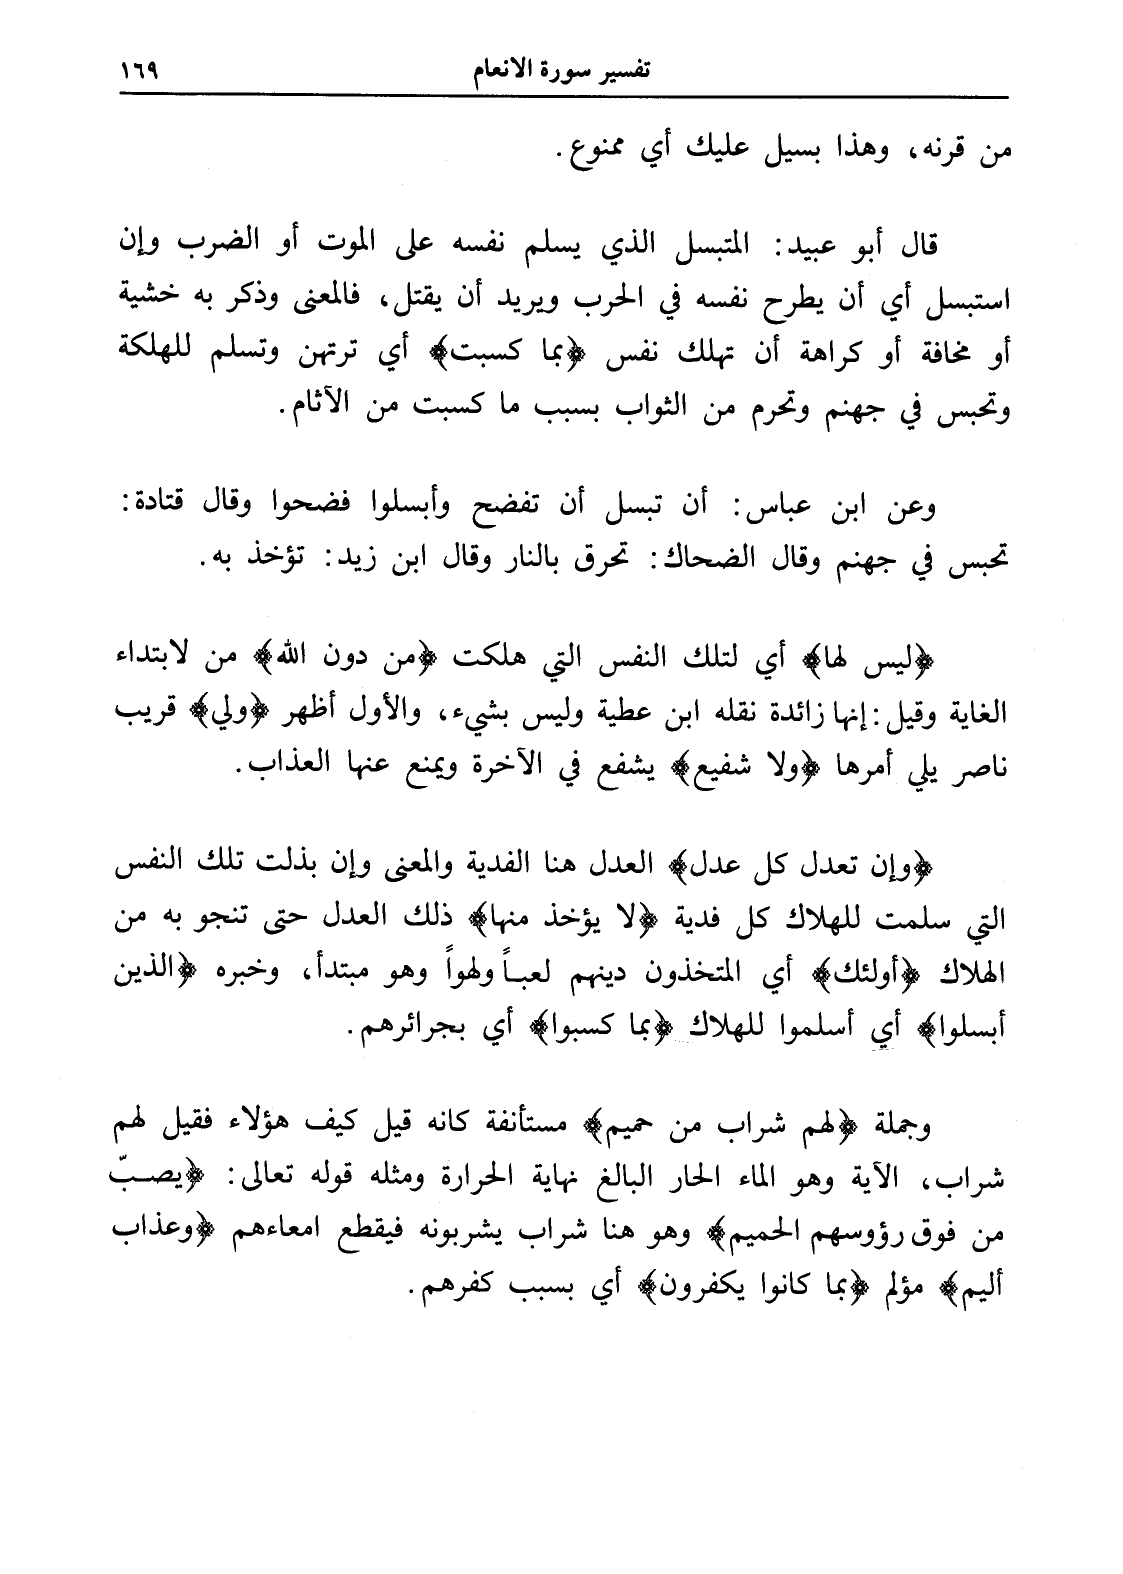 تفسير سورة الانعام ١٦٩
من قرنه، وهذا بسيل عليك أي ممنوع.
قال أبو عبيد: المتبسل الذي يسلم نفسه على الموت أو الضرب وإن
استبسل أي أن يطرح نفسه في الحرب ويريد أن يقتل، فالمعنى وذكر به خشية
أو مخافة أو كراهة أن تهلك نفس ﴿بما كسبت﴾ أي ترتهن وتسلم للهلكة
وتحبس في جهنم وتحرم من الثواب بسبب ما كسبت من الآثام.
وعن ابن عباس: أن تبسل أن تفضح وأبسلوا فضحوا وقال قتادة:
تحبس في جهنم وقال الضحاك: تحرق بالنار وقال ابن زيد: تؤخذ به.
﴿ليس لها﴾ أي لتلك النفس التي هلكت ﴿من دون الله﴾ من لابتداء
الغاية وقيل: إنها زائدة نقله ابن عطية وليس بشيء، والأول أظهر ﴿ولي﴾ قريب
ناصر يلي أمرها ﴿ولا شفيع﴾ يشفع في الآخرة ويمنع عنها العذاب.
﴿وإن تعدل كل عدل﴾ العدل هنا الفدية والمعنى وإن بذلت تلك النفس
التي سلمت للهلاك كل فدية ﴿لا يؤخذ منها﴾ ذلك العدل حتى تنجو به من
الهلاك ﴿أولئك﴾ أي المتخذون دينهم لعباً ولهواً وهو مبتدأ، وخبره ﴿الذين
أبسلوا﴾ أي أسلموا للهلاك ﴿بما كسبوا﴾ أي بجرائرهم.
وجملة ﴿لهم شراب من حميم﴾ مستأنفة كانه قيل كيف هؤلاء فقيل لهم
شراب، الآية وهو الماء الحار البالغ نهاية الحرارة ومثله قوله تعالى: ﴿يصبّ
من فوق رؤوسهم الحميم﴾ وهو هنا شراب يشربونه فيقطع امعاءهم ﴿وعذاب
أليم﴾ مؤلم ﴿بما كانوا يكفرون﴾ أي بسبب كفرهم.